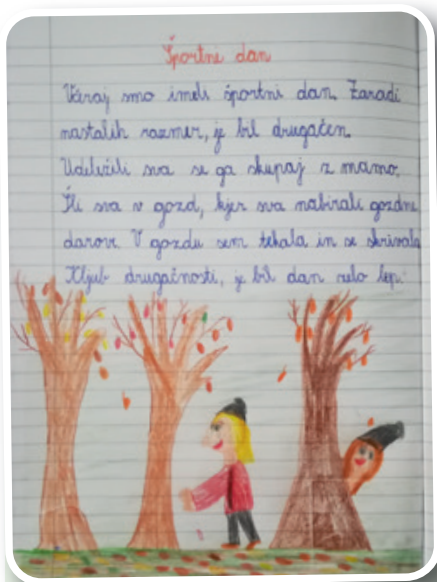 Športni dan
Včeraj smo imeli športni dan. Zaradi
nastalih razmer, je bil drugačen.
Udeležili sva se ga skupaj z mamo.
Šli sva v gozd, kjer sva nabirali gozdne
darove. V gozdu sem tekala in se skrivala.
Kljub drugačnosti, je bil dan zelo lep.